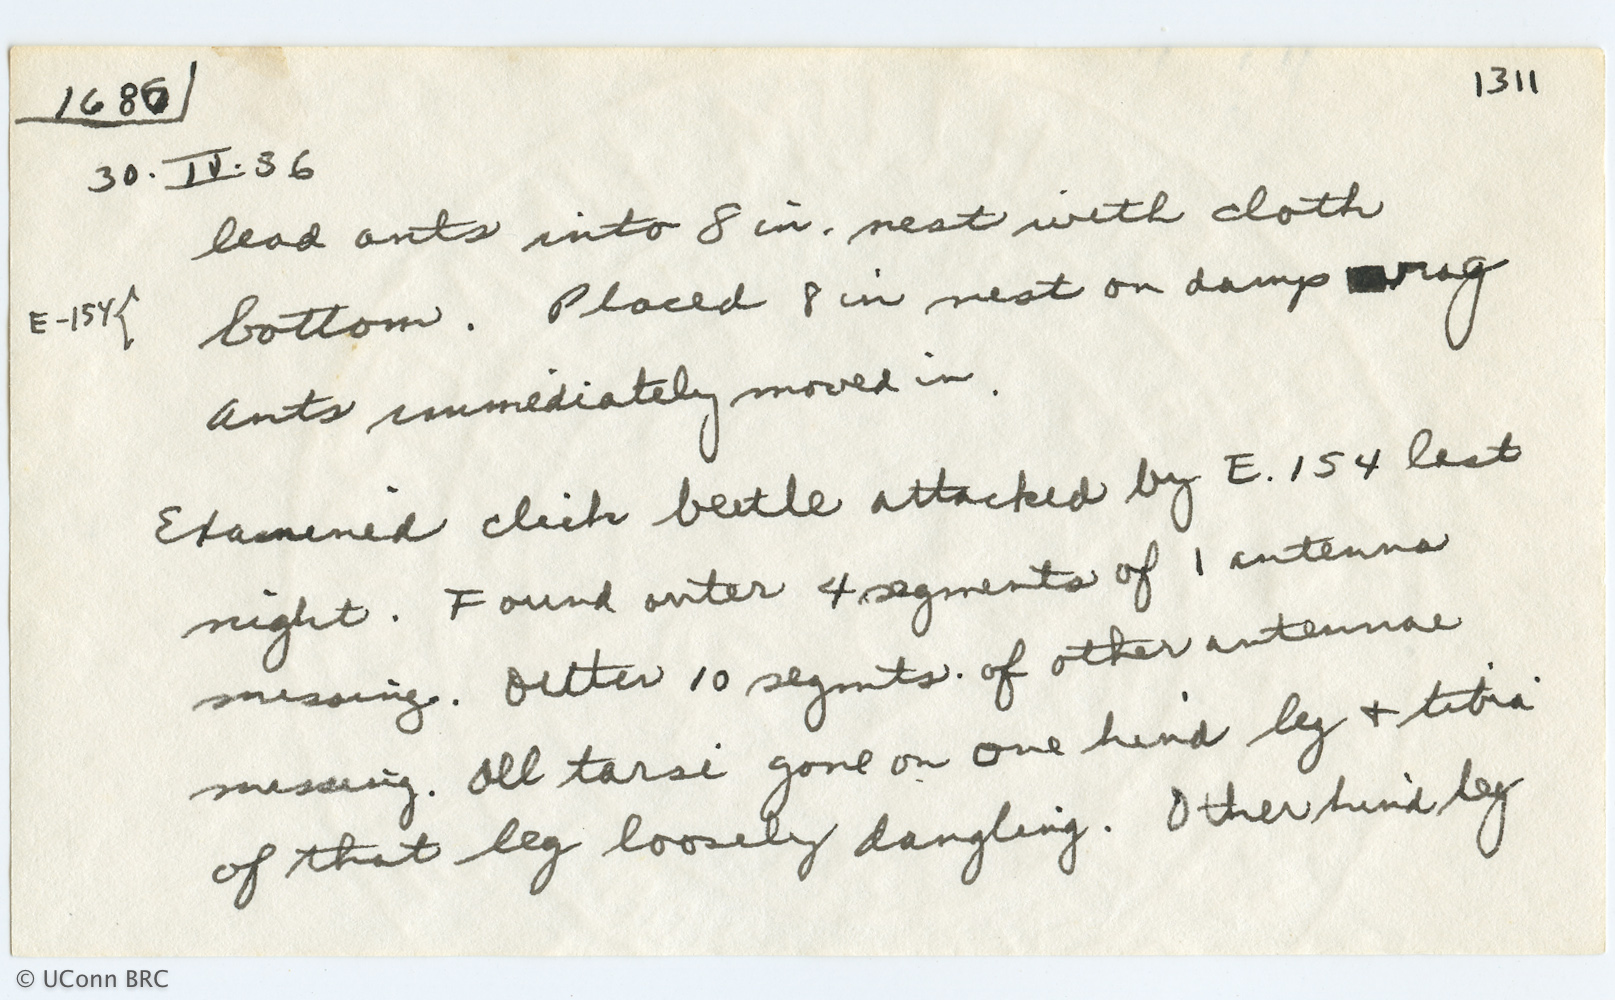 1686
1311
30.IV.36
lead ants into 8 in. nest with cloth
E-154{
bottom. Placed 8 in nest on damp rag
Ants immediately moved in.
Examined click beetle attacked by E. 154 last
night. Found outer 4 segments of 1 antenna
missing. Outter 10 segmts. of other antennae
missing. All tarsi gone on one hind leg + tibia
of that leg loosely dangling. Other hind leg
© UConn BRC